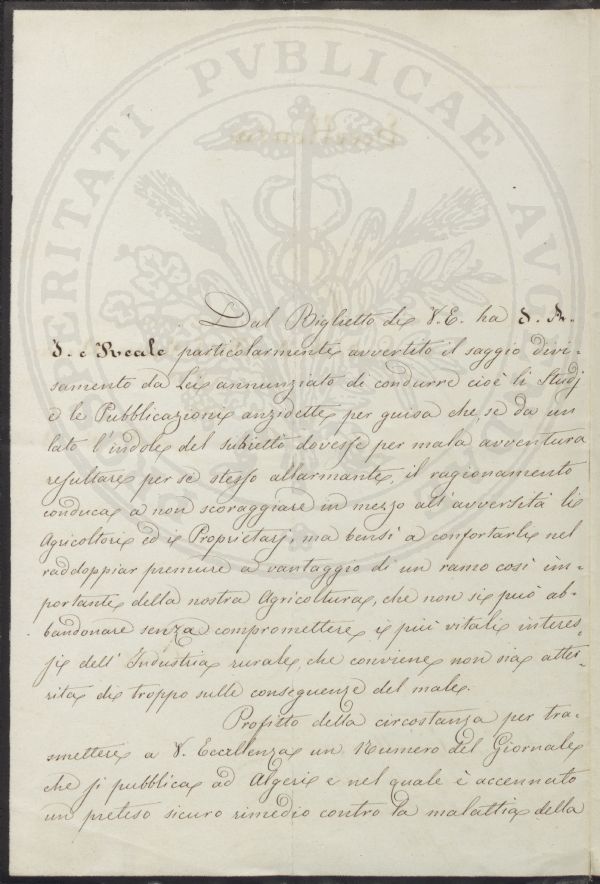 PROSPERITATI PVBLICAE AVGENDAE
Dal Biglietto di V. E. ha S. A.
I. e Reale particolarmente avvertito il saggio divi-
samento da Lei annunziato di condurre cioè li Studj
e le Pubblicazioni anzidette per guisa che, se da un
lato l'indole del subietto dovesse per mala avventura
resultare per sè stesso allarmante, il ragionamento
conduca a non scoraggiare in mezzo all'avversità li
Agricoltori ed i Proprietarj, ma bensì a confortarli nel
raddoppiar premure a vantaggio di un ramo così im-
portante della nostra Agricoltura, che non si può ab-
bandonare senza compromettere i più vitali interes-
si dell'Industria rurale, che conviene non sia atter-
rita di troppo sulle conseguenze del male.
Profitto della circostanza per tra-
smettere a V. Eccellenza un Numero del Giornale
che si pubblica ad Algeri e nel quale è accennato
un preteso sicuro rimedio contro la malattia della